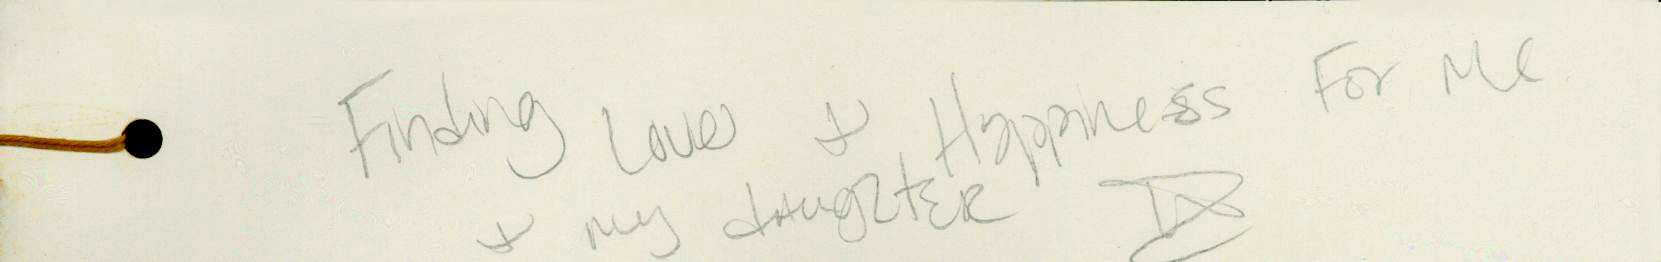 Finding Love + Happiness For Me
+ my daughter